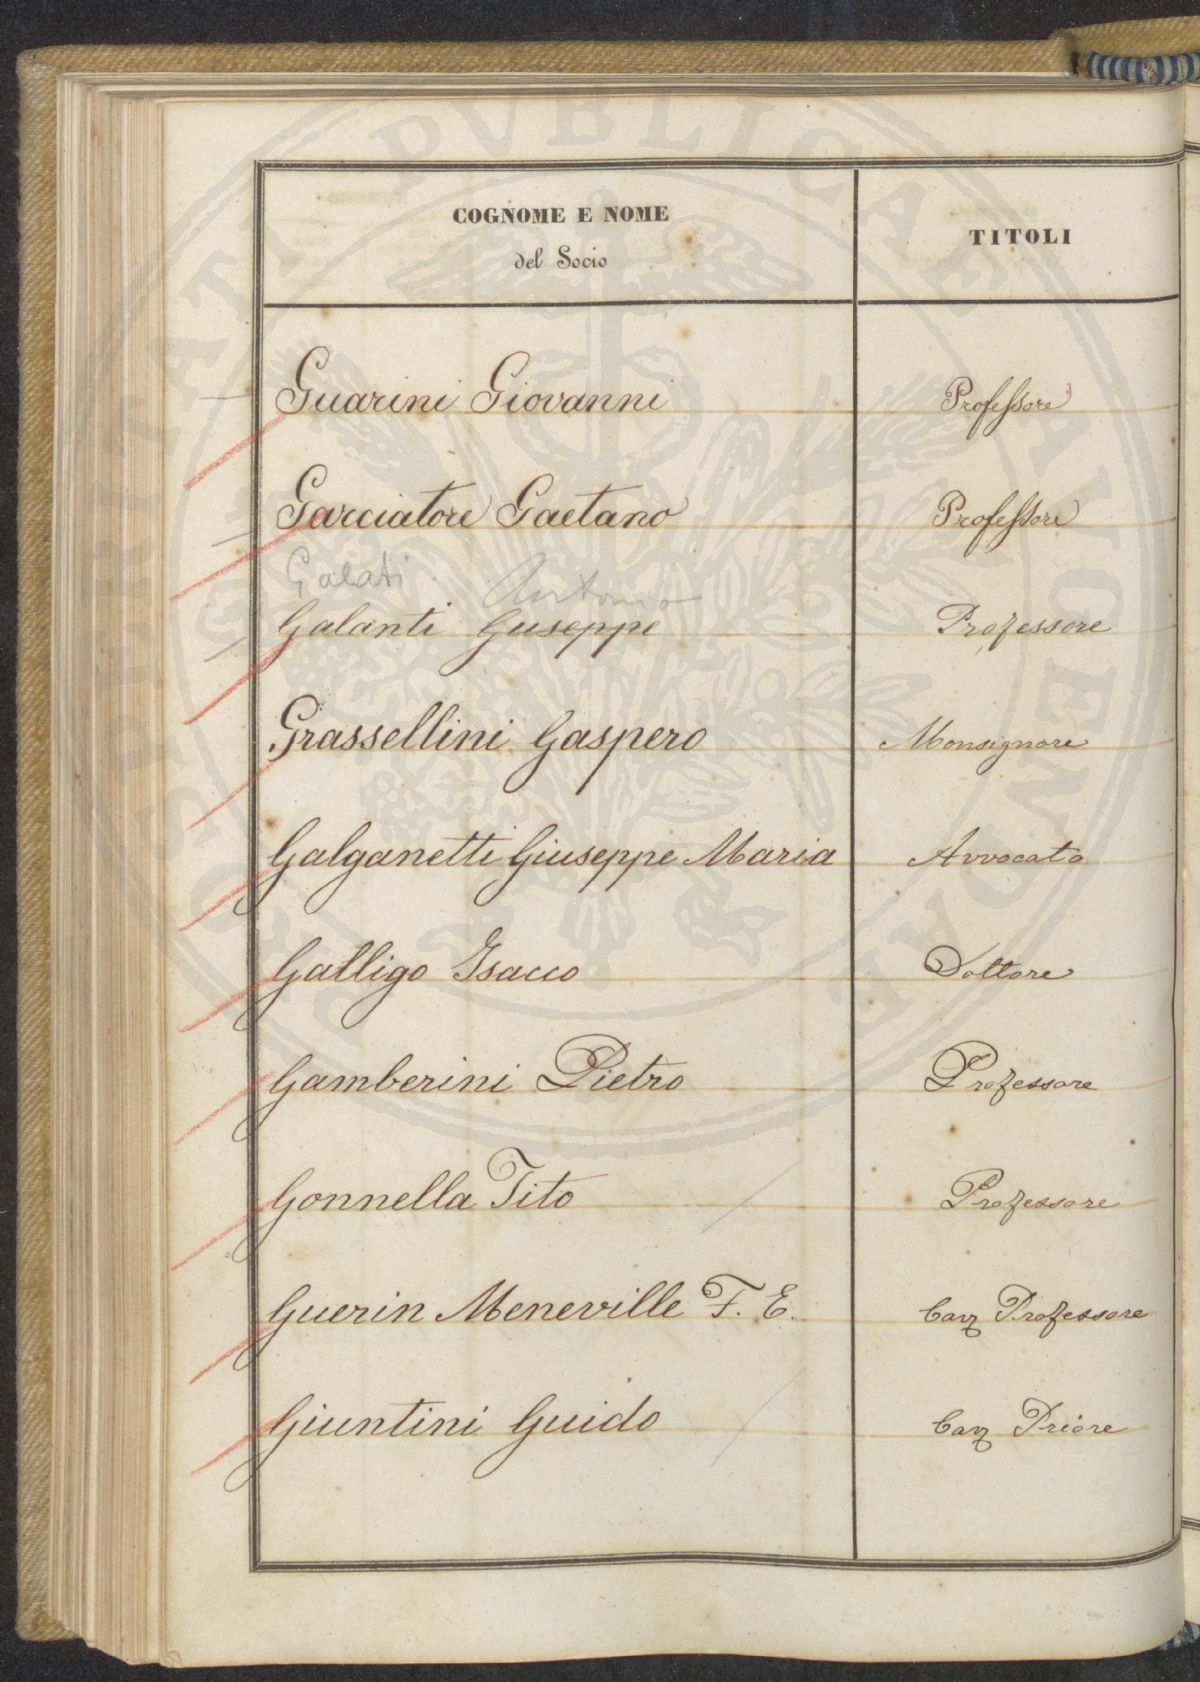 COGNOME E NOME
del Socio
TITOLI
Guarini Giovanni Professore
Garciatore Gaetano Professore
Galati Antonio
Galanti Guseppe Professore
Grassellini Gaspero Monsignore
Galganetti Giuseppe Maria Avvocato
Galligo Isacco Dottore
Gamberini Pietro Professore
Gonnella Tito Professore
Guerin Meneville F. E. Cav Professore
Giuntini Guido Cav Priore